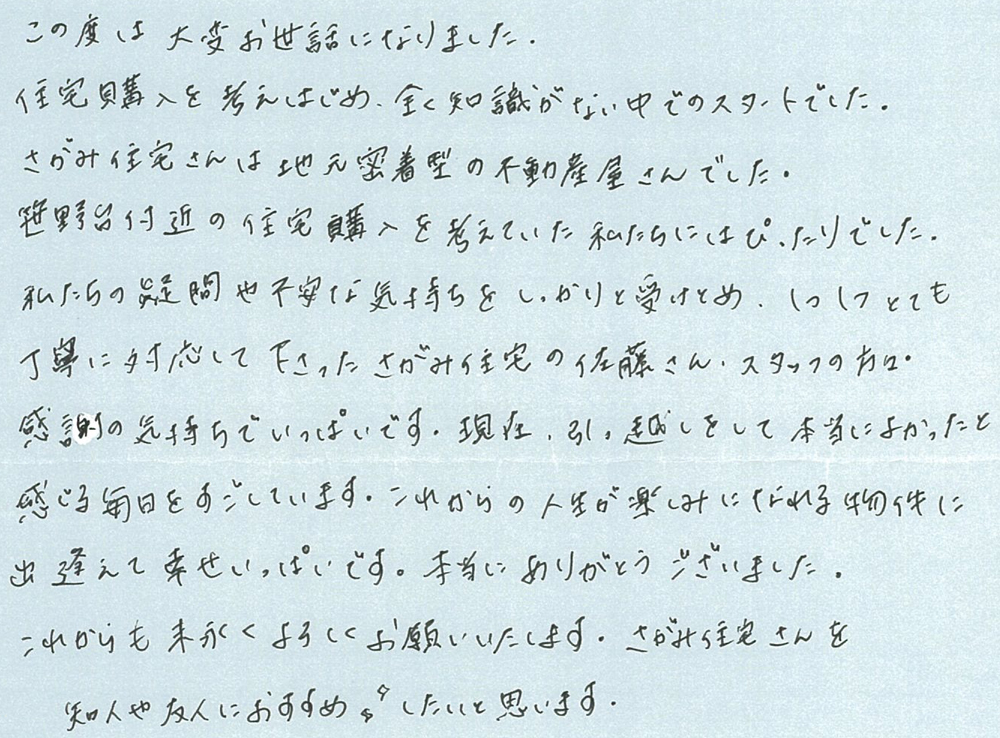 この度は大変お世話になりました.
住宅購入を考えはじめ、全く知識がない中でのスタートでした。
さがみ住宅さんは地元密着型の不動産屋さんでした。
笹野台付近の住宅購入を考えていた私たちにはぴったりでした。
私たちの疑問や不安な気持ちをしっかりと受けとめ、いつもとても
丁寧に対応して下さったさがみ住宅の佐藤さん、スタッフの方に
感謝の気持ちでいっぱいです。現在、引っ越しをして本当によかったと
感じる毎日をすごしています。これからの人生が楽しみになれる物件に
出逢えて幸せいっぱいです。本当にありがとうございました。
これからも末永くよろしくお願いいたします。さがみ住宅さんを
知人や友人におすすめしたいと思います。